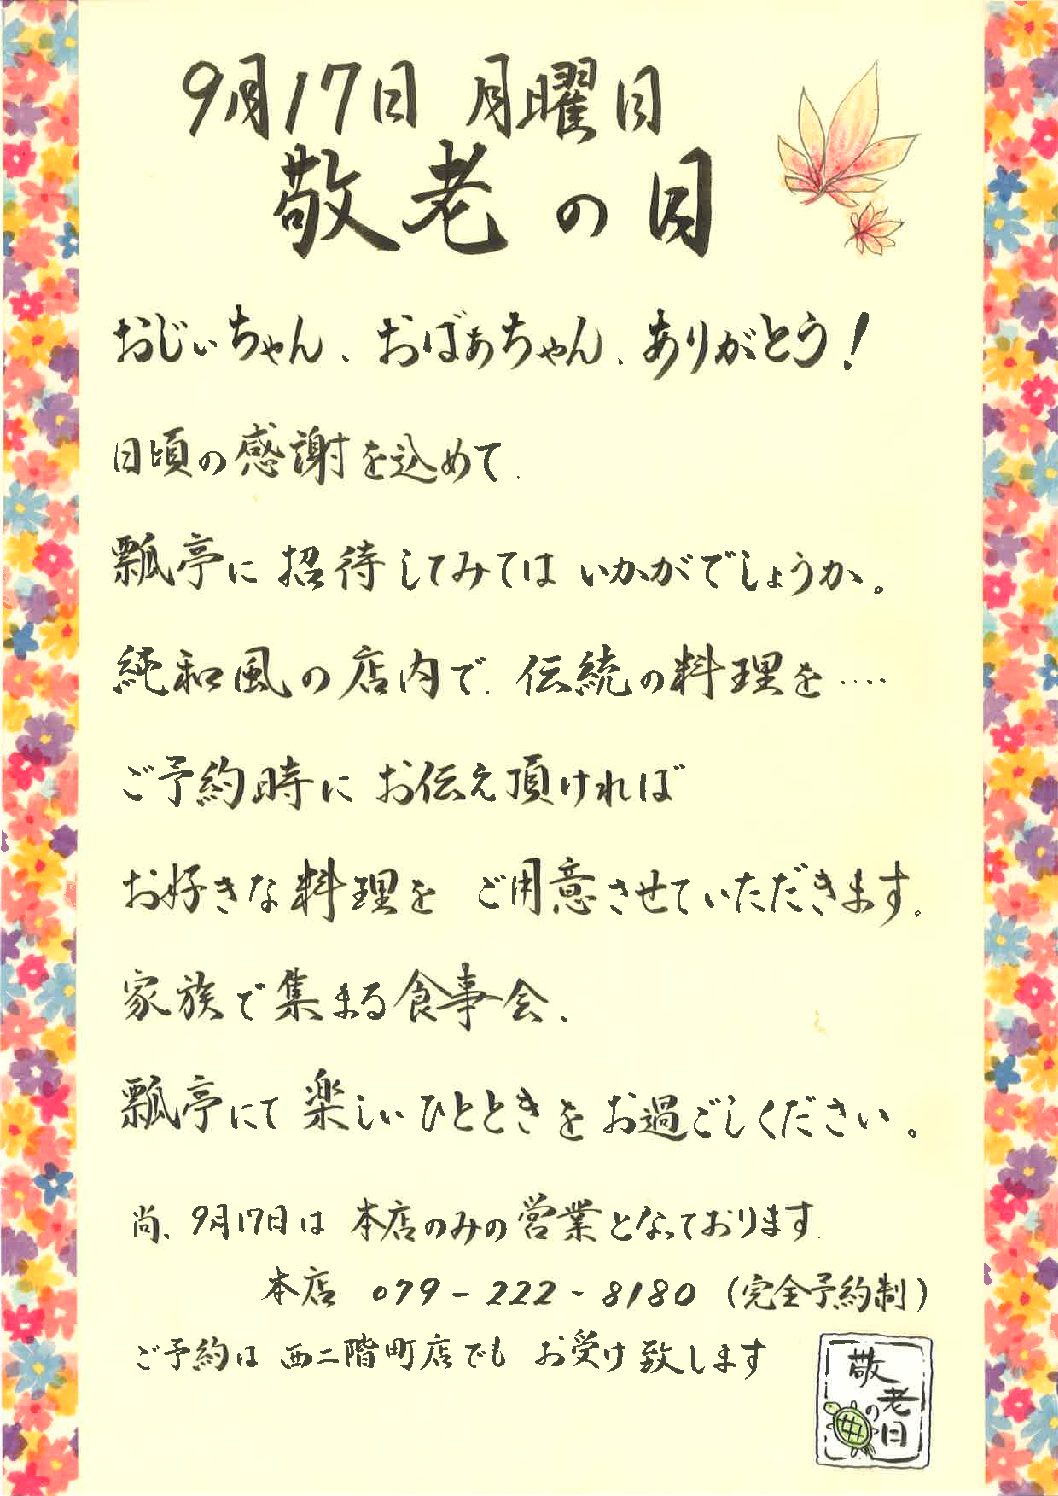 9月17日 月曜日
敬老の日
おじぃちゃん、おばぁちゃん、ありがとう!
日頃の感謝を込めて、
瓢亭に招待してみてはいかがでしょうか。
純和風の店内で、伝統の料理を‥‥
ご予約時にお伝え頂ければ
お好きな料理を ご用意させていただきます。
家族で集まる食事会、
瓢亭にて楽しいひとときをお過ごしください。
尚、9月17日は 本店のみの営業となっております。
本店 079-222-8180 (完全予約制)
ご予約は 西二階町店でも お受け致します
敬老の日